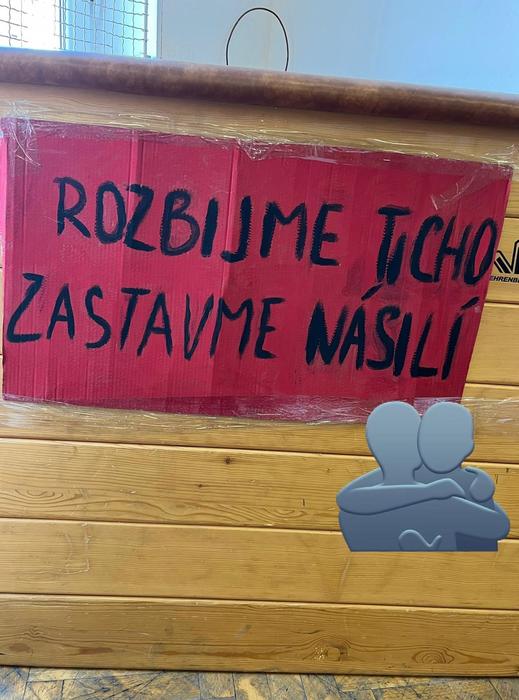 ROZBIJME TICHO
ZASTAVME NÁSILÍ
EHRENB